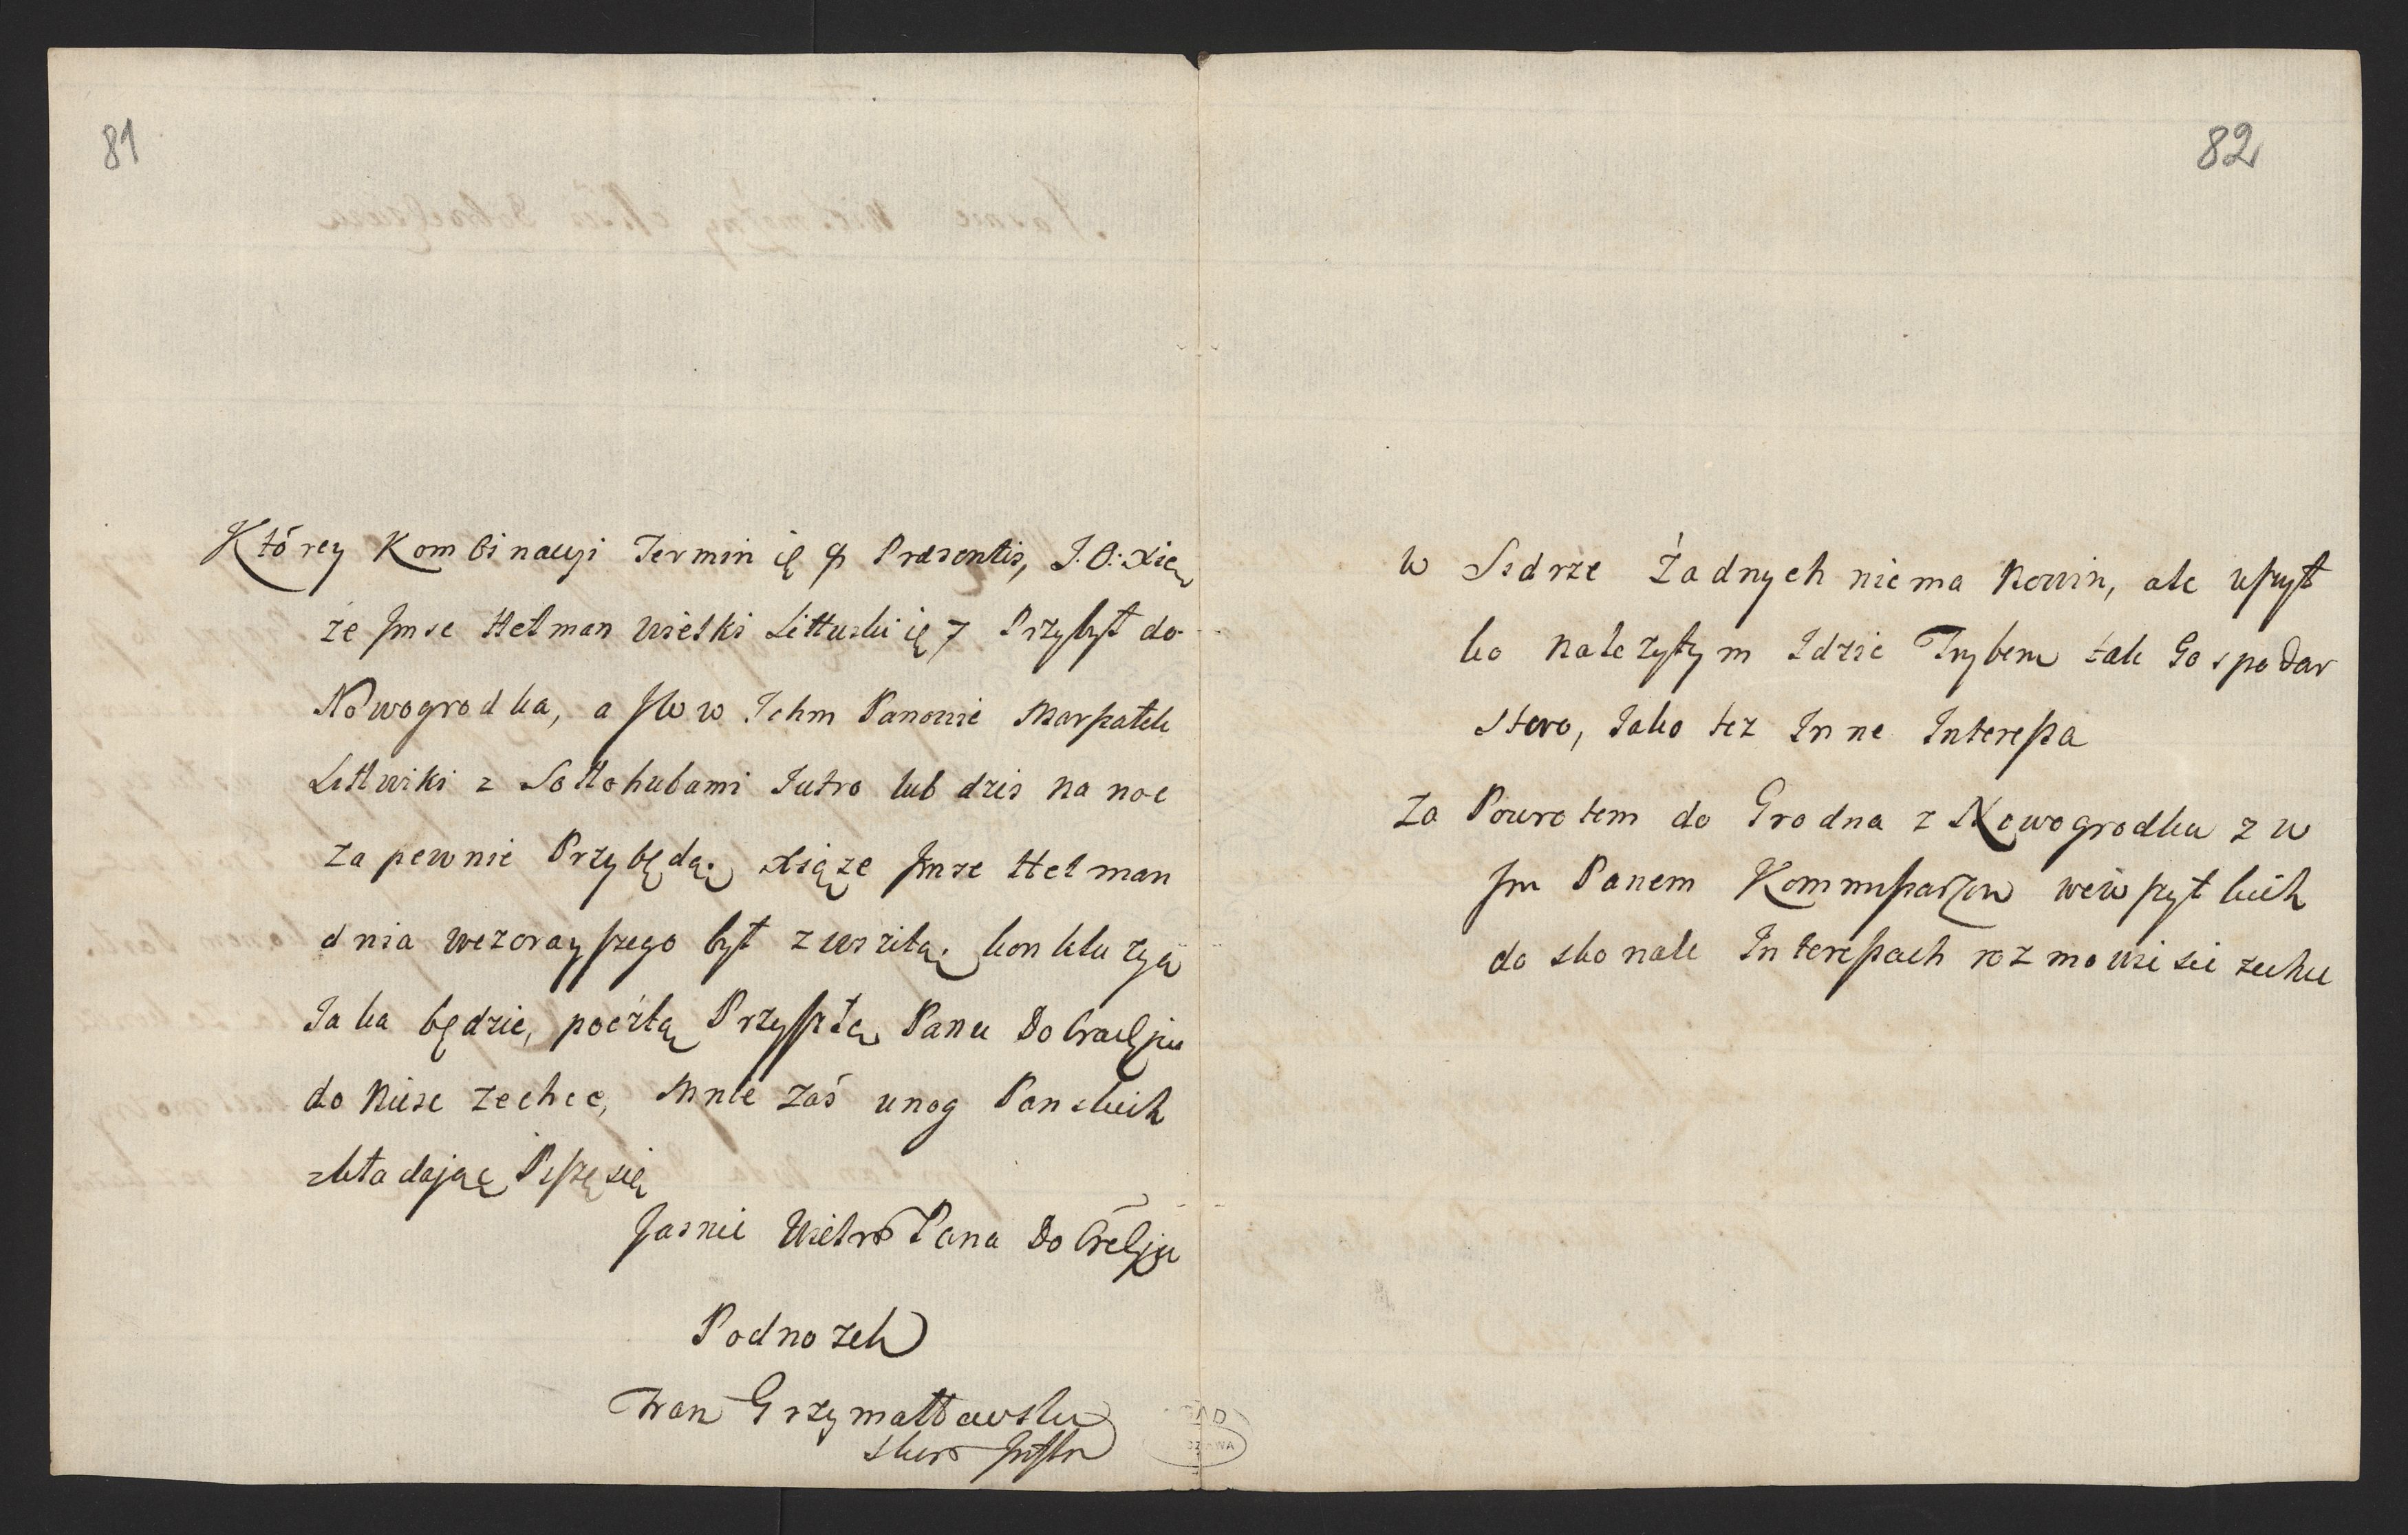 81
Którey Kombinacyi Termin ię 9 Præsentis, J. O: Xią
że Jmsc Hetman Wielki Littuski ię 7 Przybył do
Nowogrodka, a JWW Ichm Panowie Marszałek
Littwiki z Sołłohubami Jutro lub dzis na noc
zapewnie Przybędą. Xsiąze Jmsc Hetman
dnia wczorayszego był z wizitą. konkluzya
Jaka będzie, pocztą Przyszłą Panu Dobrodzju
doniesc zechce, Mnie zaś unog Panskich
składając Piszę się
Jasnie Wielmo Pana Dobrodzju
Podnozek
Grzymałławski
82
w Sidrze Żadnych niema Nowin, ale wszyst
ko nalezytym Idzie Trybem tak Gospodar
stwo, Jako tez Inne Interessa
Za Powrotem do Grodna z Nowogrodka z W
Jm Panem Kommissarzem wewszytkich
doskonale Interessach rozmowic sie zechce